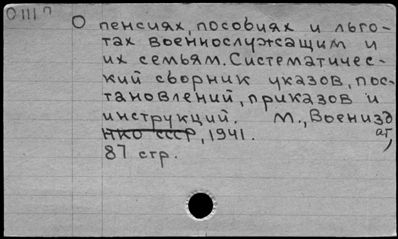 0111 п
О пенсиях, пособиях и льго-
тах военнослужащим и
их семьям. Систематичес-
кий сборник указов, пос-
тановлений, приказов и
инструкций. М., Воениздат,
НКО СССР, 1941.
87 стр.